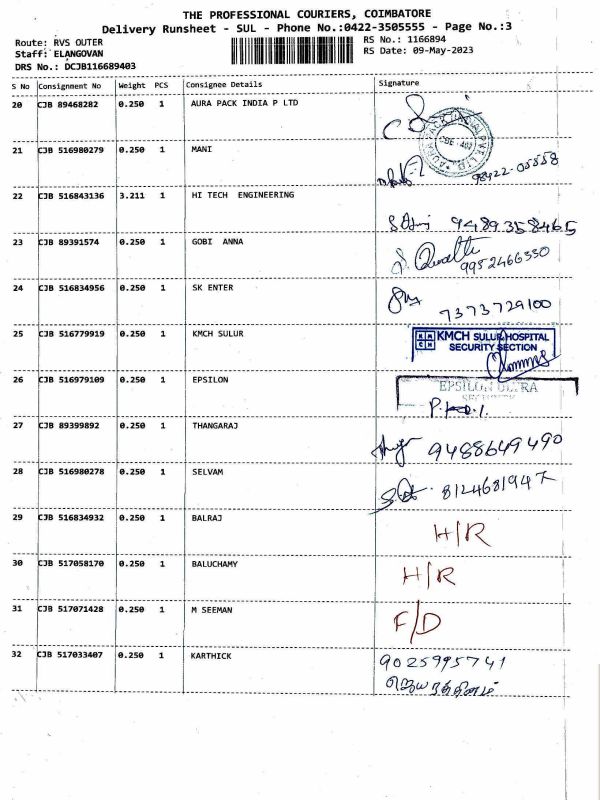 THE PROFESSIONAL COURIERS, COIMBATORE
Delivery Runsheet - SUL - Phone No.:0422-3505555 - Page No.:3
Route: RVS OUTER
Staff: ELANGOVAN
DRS No.: DCJB116689403
RS No.: 1166894
RS Date: 09-May-2023
S No Consignment No Weight PCS Consignee Details Signature
20 CJB 89468282 0.250 1 AURA PACK INDIA P LTD
21 CJB 516980279 0.250 1 MANI 98422-05558
22 CJB 516843136 3.211 1 HI TECH ENGINEERING 9489358465
23 CJB 89391574 0.250 1 GOBI ANNA 9952466330
24 CJB 516834956 0.250 1 SK ENTER 7373729100
25 CJB 516779919 0.250 1 KMCH SULUR KMCH SULUR HOSPITAL
SECURITY SECTION
26 CJB 516979109 0.250 1 EPSILON EPSILON
SECURITY
27 CJB 89399892 0.250 1 THANGARAJ 9488649490
28 CJB 516980278 0.250 1 SELVAM 8124681947
29 CJB 516834932 0.250 1 BALRAJ H/R
30 CJB 517058170 0.250 1 BALUCHAMY H/R
31 CJB 517071428 0.250 1 M SEEMAN F/D
32 CJB 517033407 0.250 1 KARTHICK 9025995741